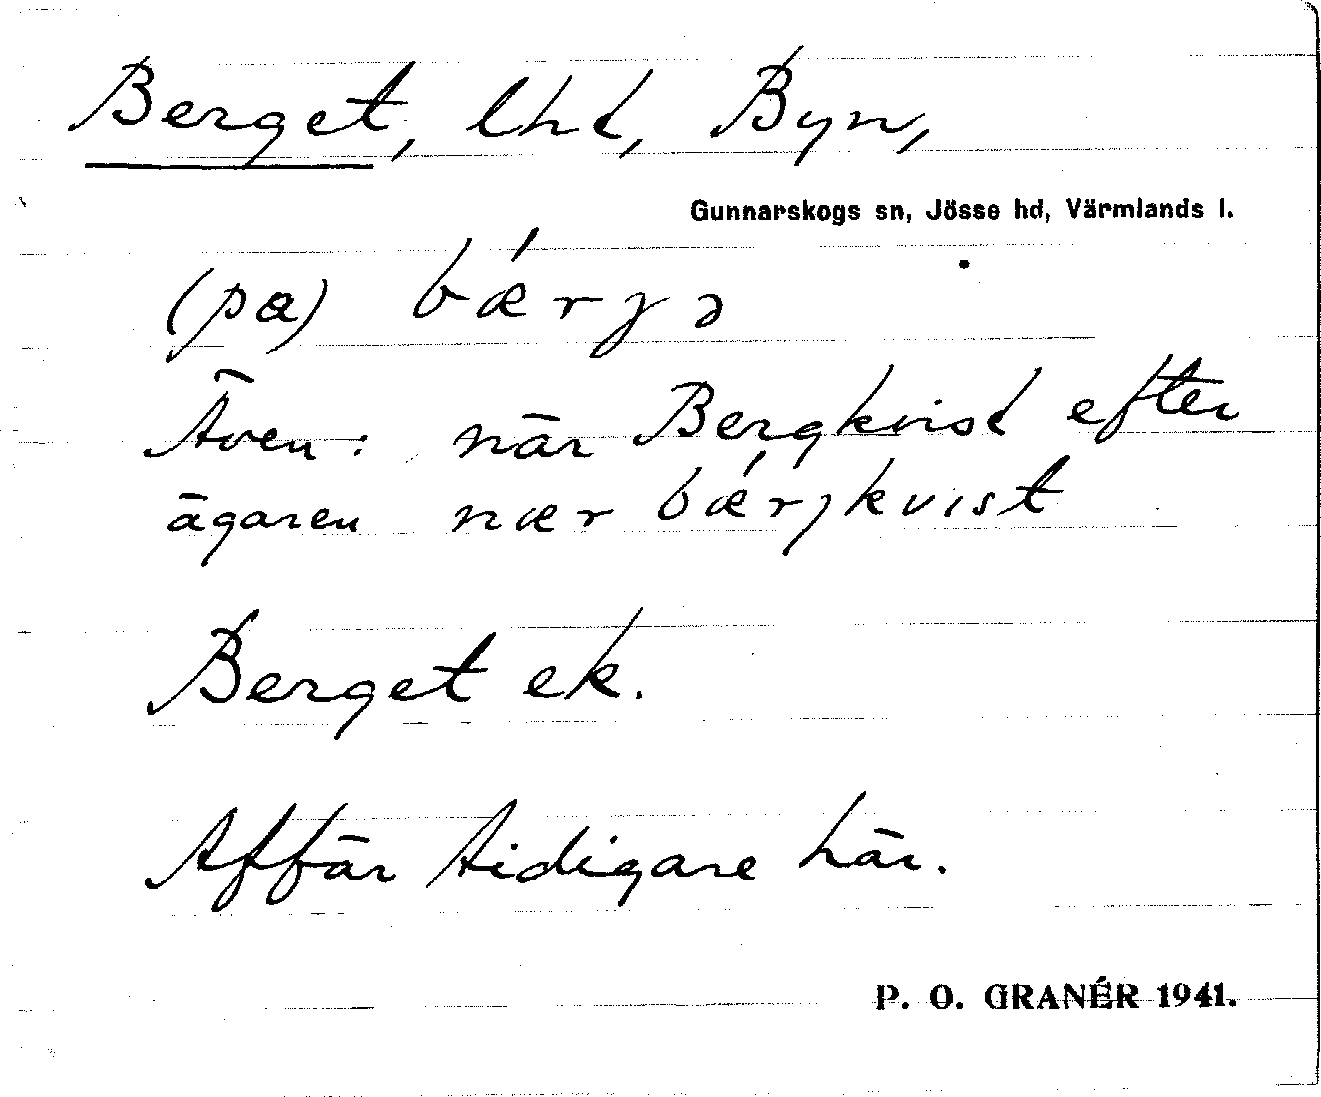 Berget, lht, Byn,
Gunnarskogs sn, Jösse hd, Värmlands l.
(pa) bǽrjə
Även: när Bergkvist efter
ägaren nær bǽrjkvist
Berget ek.
Affär tidigare här.
P. O. GRANÉR 1941.